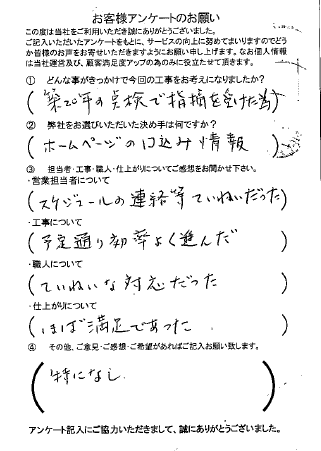 お客様アンケートのお願い
この度は当社をご利用いただき誠にありがとうございました。
ご記入いただいたアンケートをもとに、サービスの向上に努めてまいりますのでどう
か皆様のお声をお寄せいただきますようにお願い申し上げます。なお個人情報
は当社運営及び、顧客満足度アップの為のみに役立たせて頂きます。
① どんな事がきっかけで今回の工事をお考えになりましたか?
(築20年の点検で指摘を受けた為)
② 弊社をお選びいただいた決め手は何ですか?
(ホームページの口込み情報)
③ 担当者・工事・職人・仕上がりについてご感想をお聞かせ下さい。
・営業担当者について
(スケジュールの連絡等ていねいだった)
・工事について
(予定通り効率よく進んだ)
・職人について
(ていねいな対応だった)
・仕上がりについて
(ほぼ満足であった)
④ その他、ご意見・ご感想・ご希望があればご記入お願い致します。
(特になし)
アンケート記入にご協力いただきまして、誠にありがとうございました。